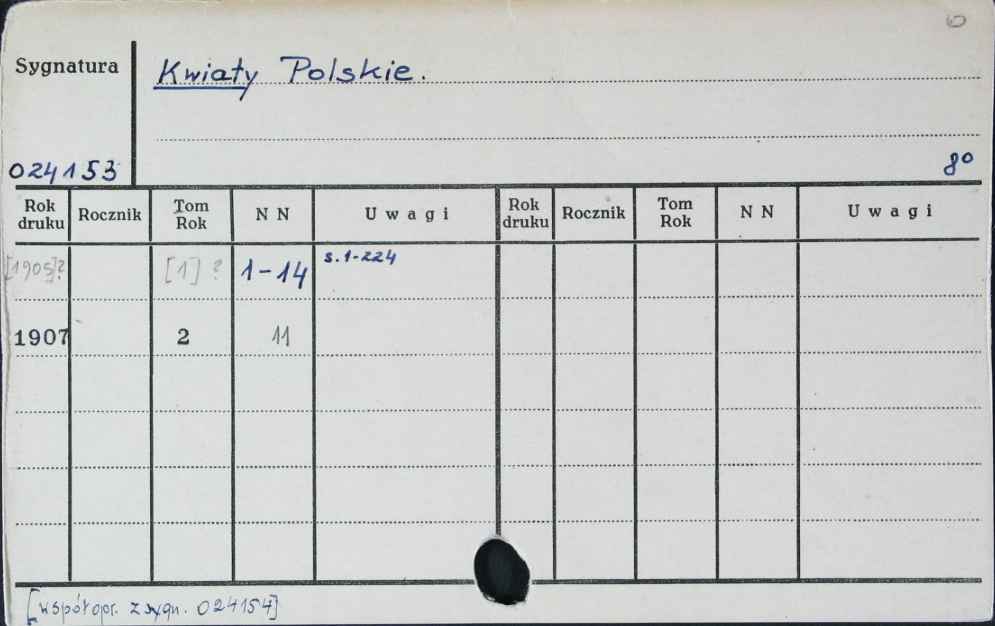 Sygnatura Kwiaty Polskie.
024153 8º
Rok druku Rocznik Tom Rok N N Uwagi Rok druku Rocznik Tom Rok N N Uwagi
[1905]? [1] ? 1-14 s. 1-224
1907 2 11
[współopr. z sygn. 024154]